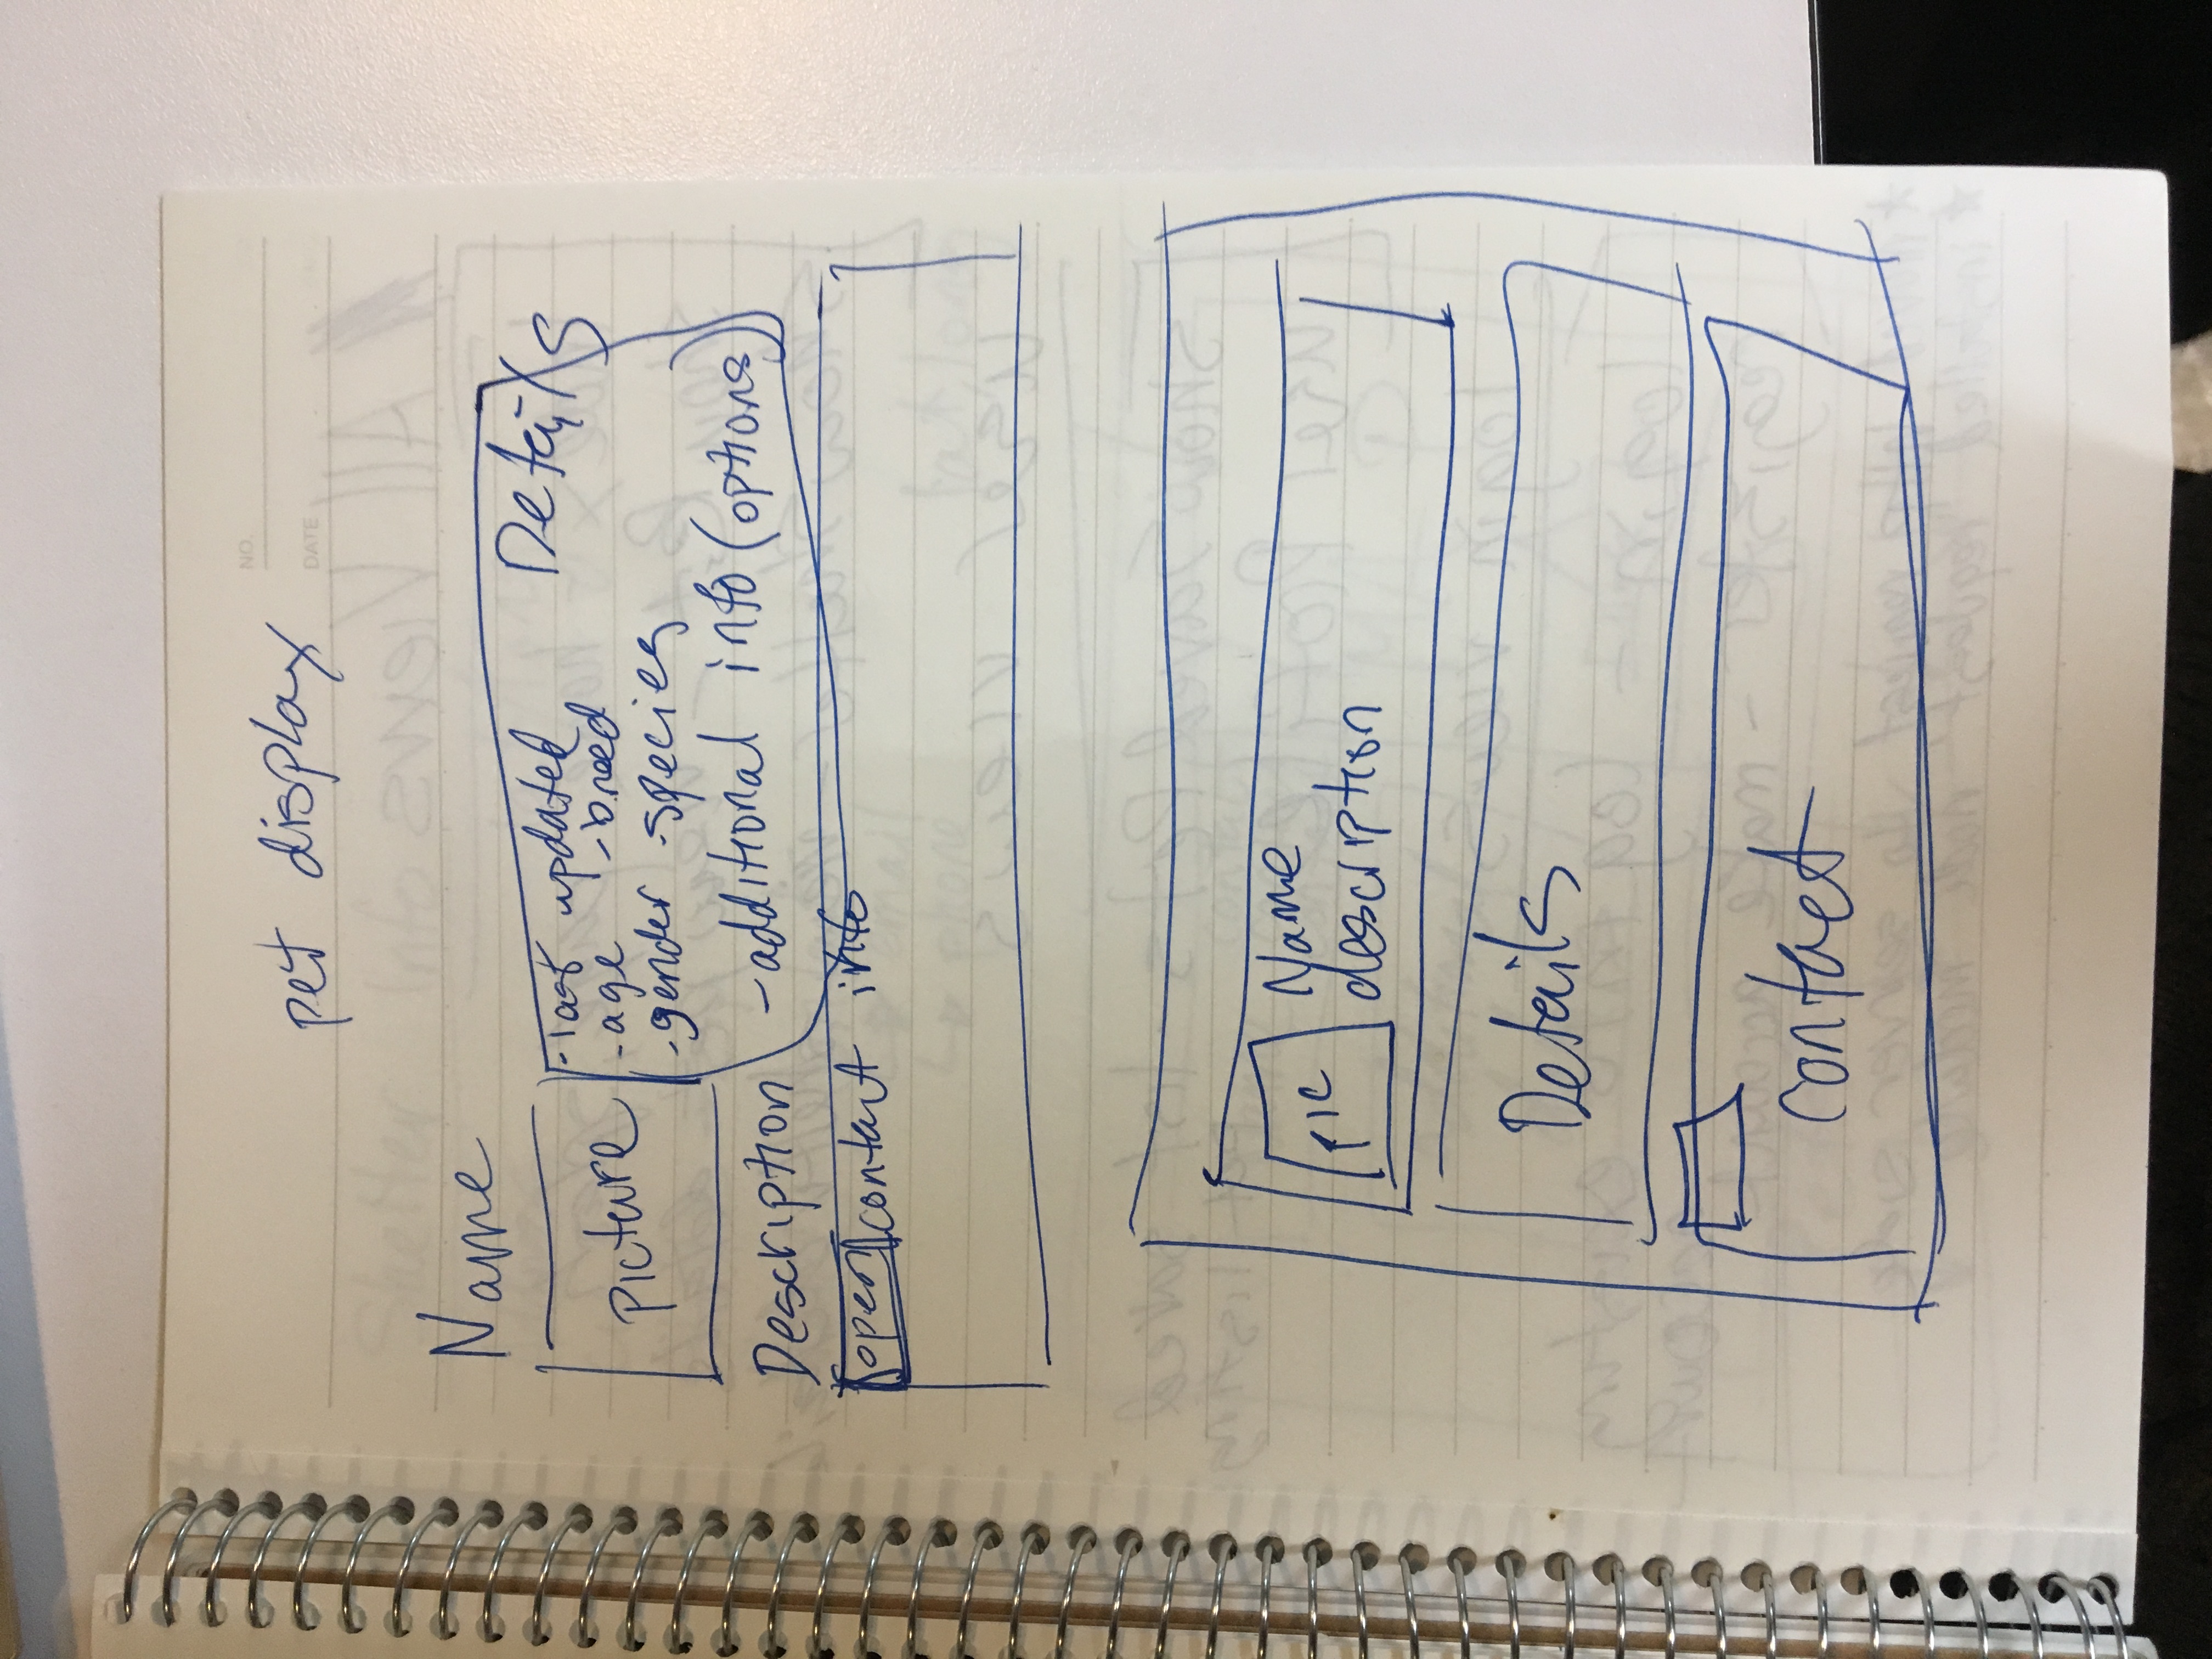 NO.
DATE
pet display
Name
Details
- last updated
- age - breed
Picture
- gender - species
- additional info (options)
Description
open contact info
pic Name
description
Details
contact